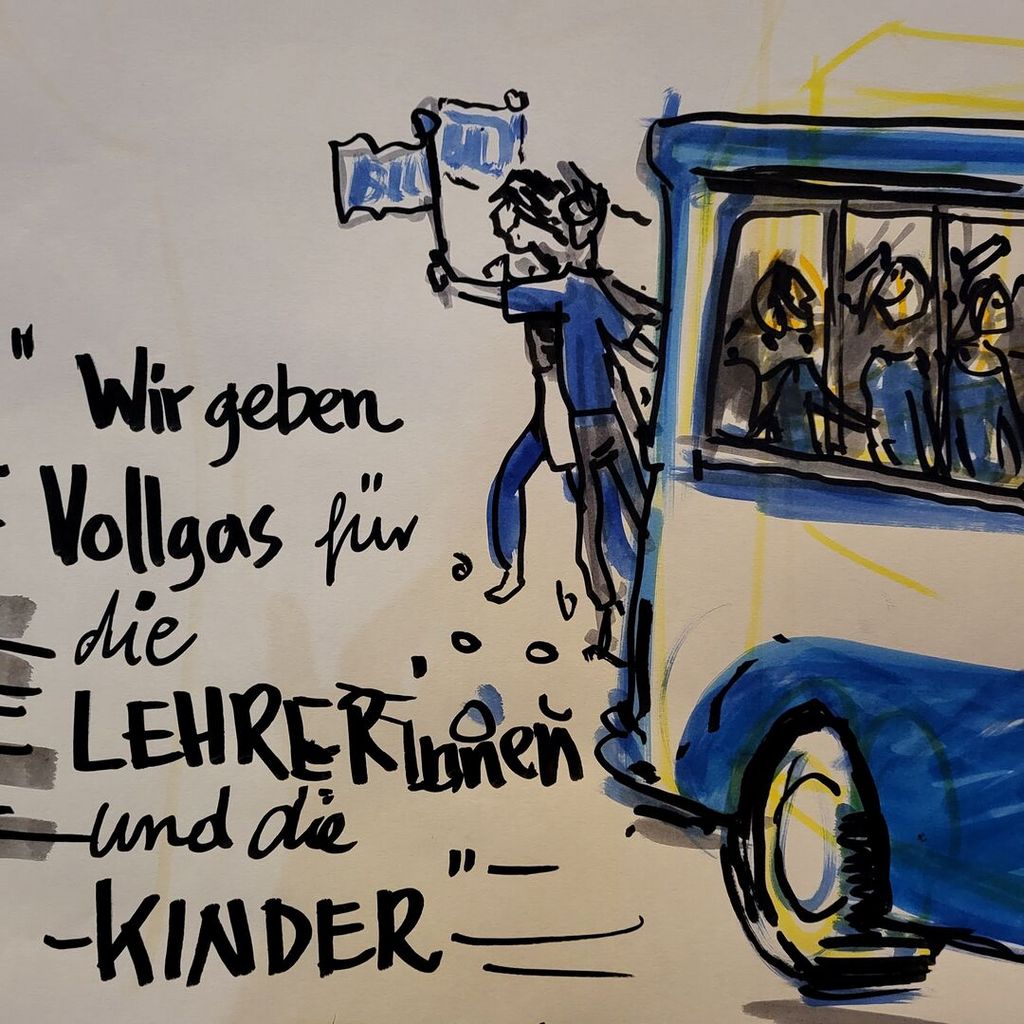 " Wir geben
Vollgas für
die
LEHRERInnen
und die
KINDER "